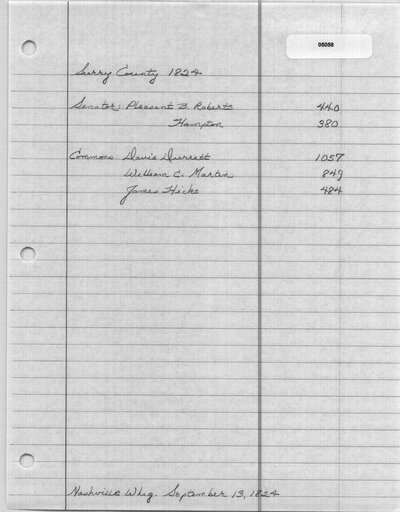 05058
Surry County 1824
Senator: Pleasant B. Roberts 440
Hampton 380
Commons Davis Durrett 1057
William C. Martin 849
James Hicks 484
Nashville Whig. September 13, 1824